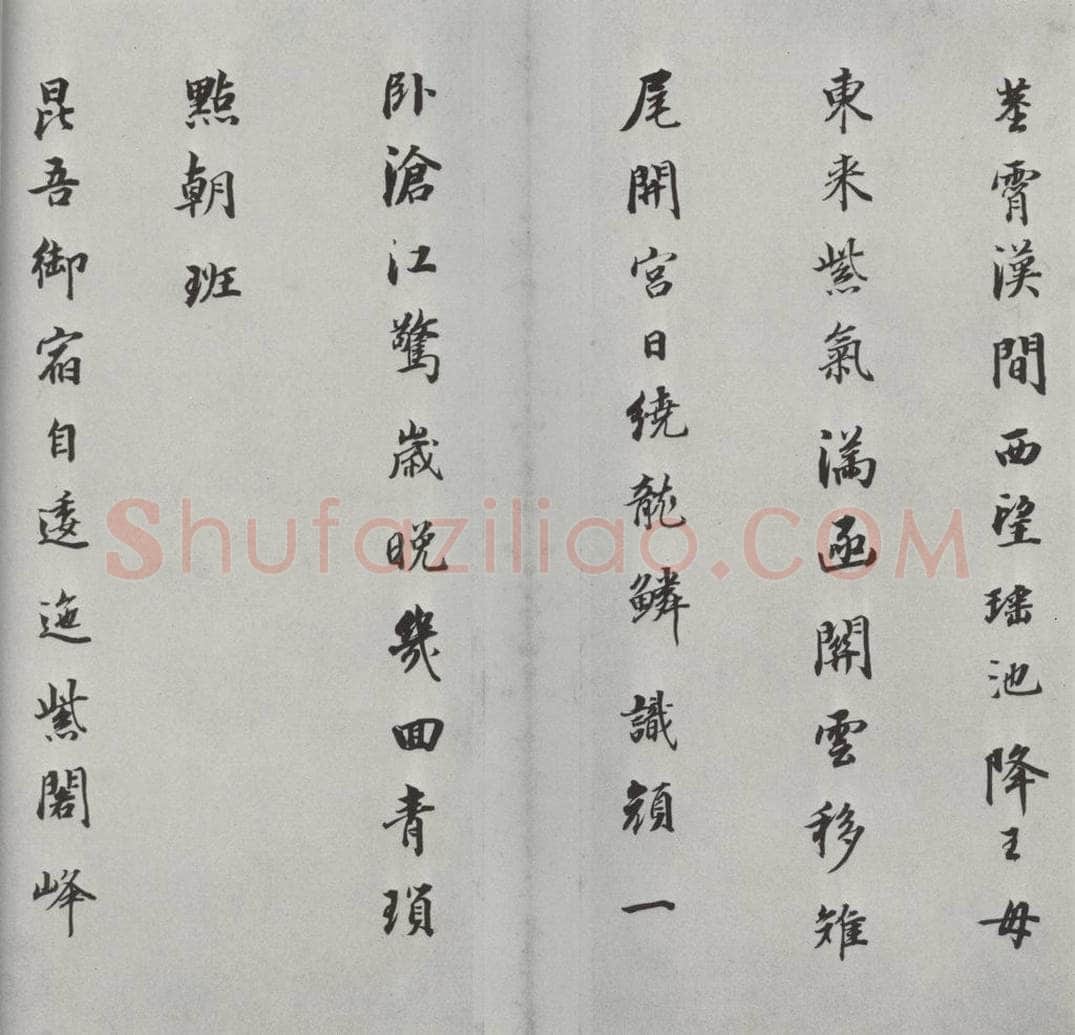 莖霄漢間西望瑤池降王母
東来紫氣滿函關雲移雉
尾開宮日繞龍鱗識顏一
卧滄江驚歲晚幾回青瑣
點朝班
昆吾御宿自逶迤紫閣峰
Shufaziliao.COM